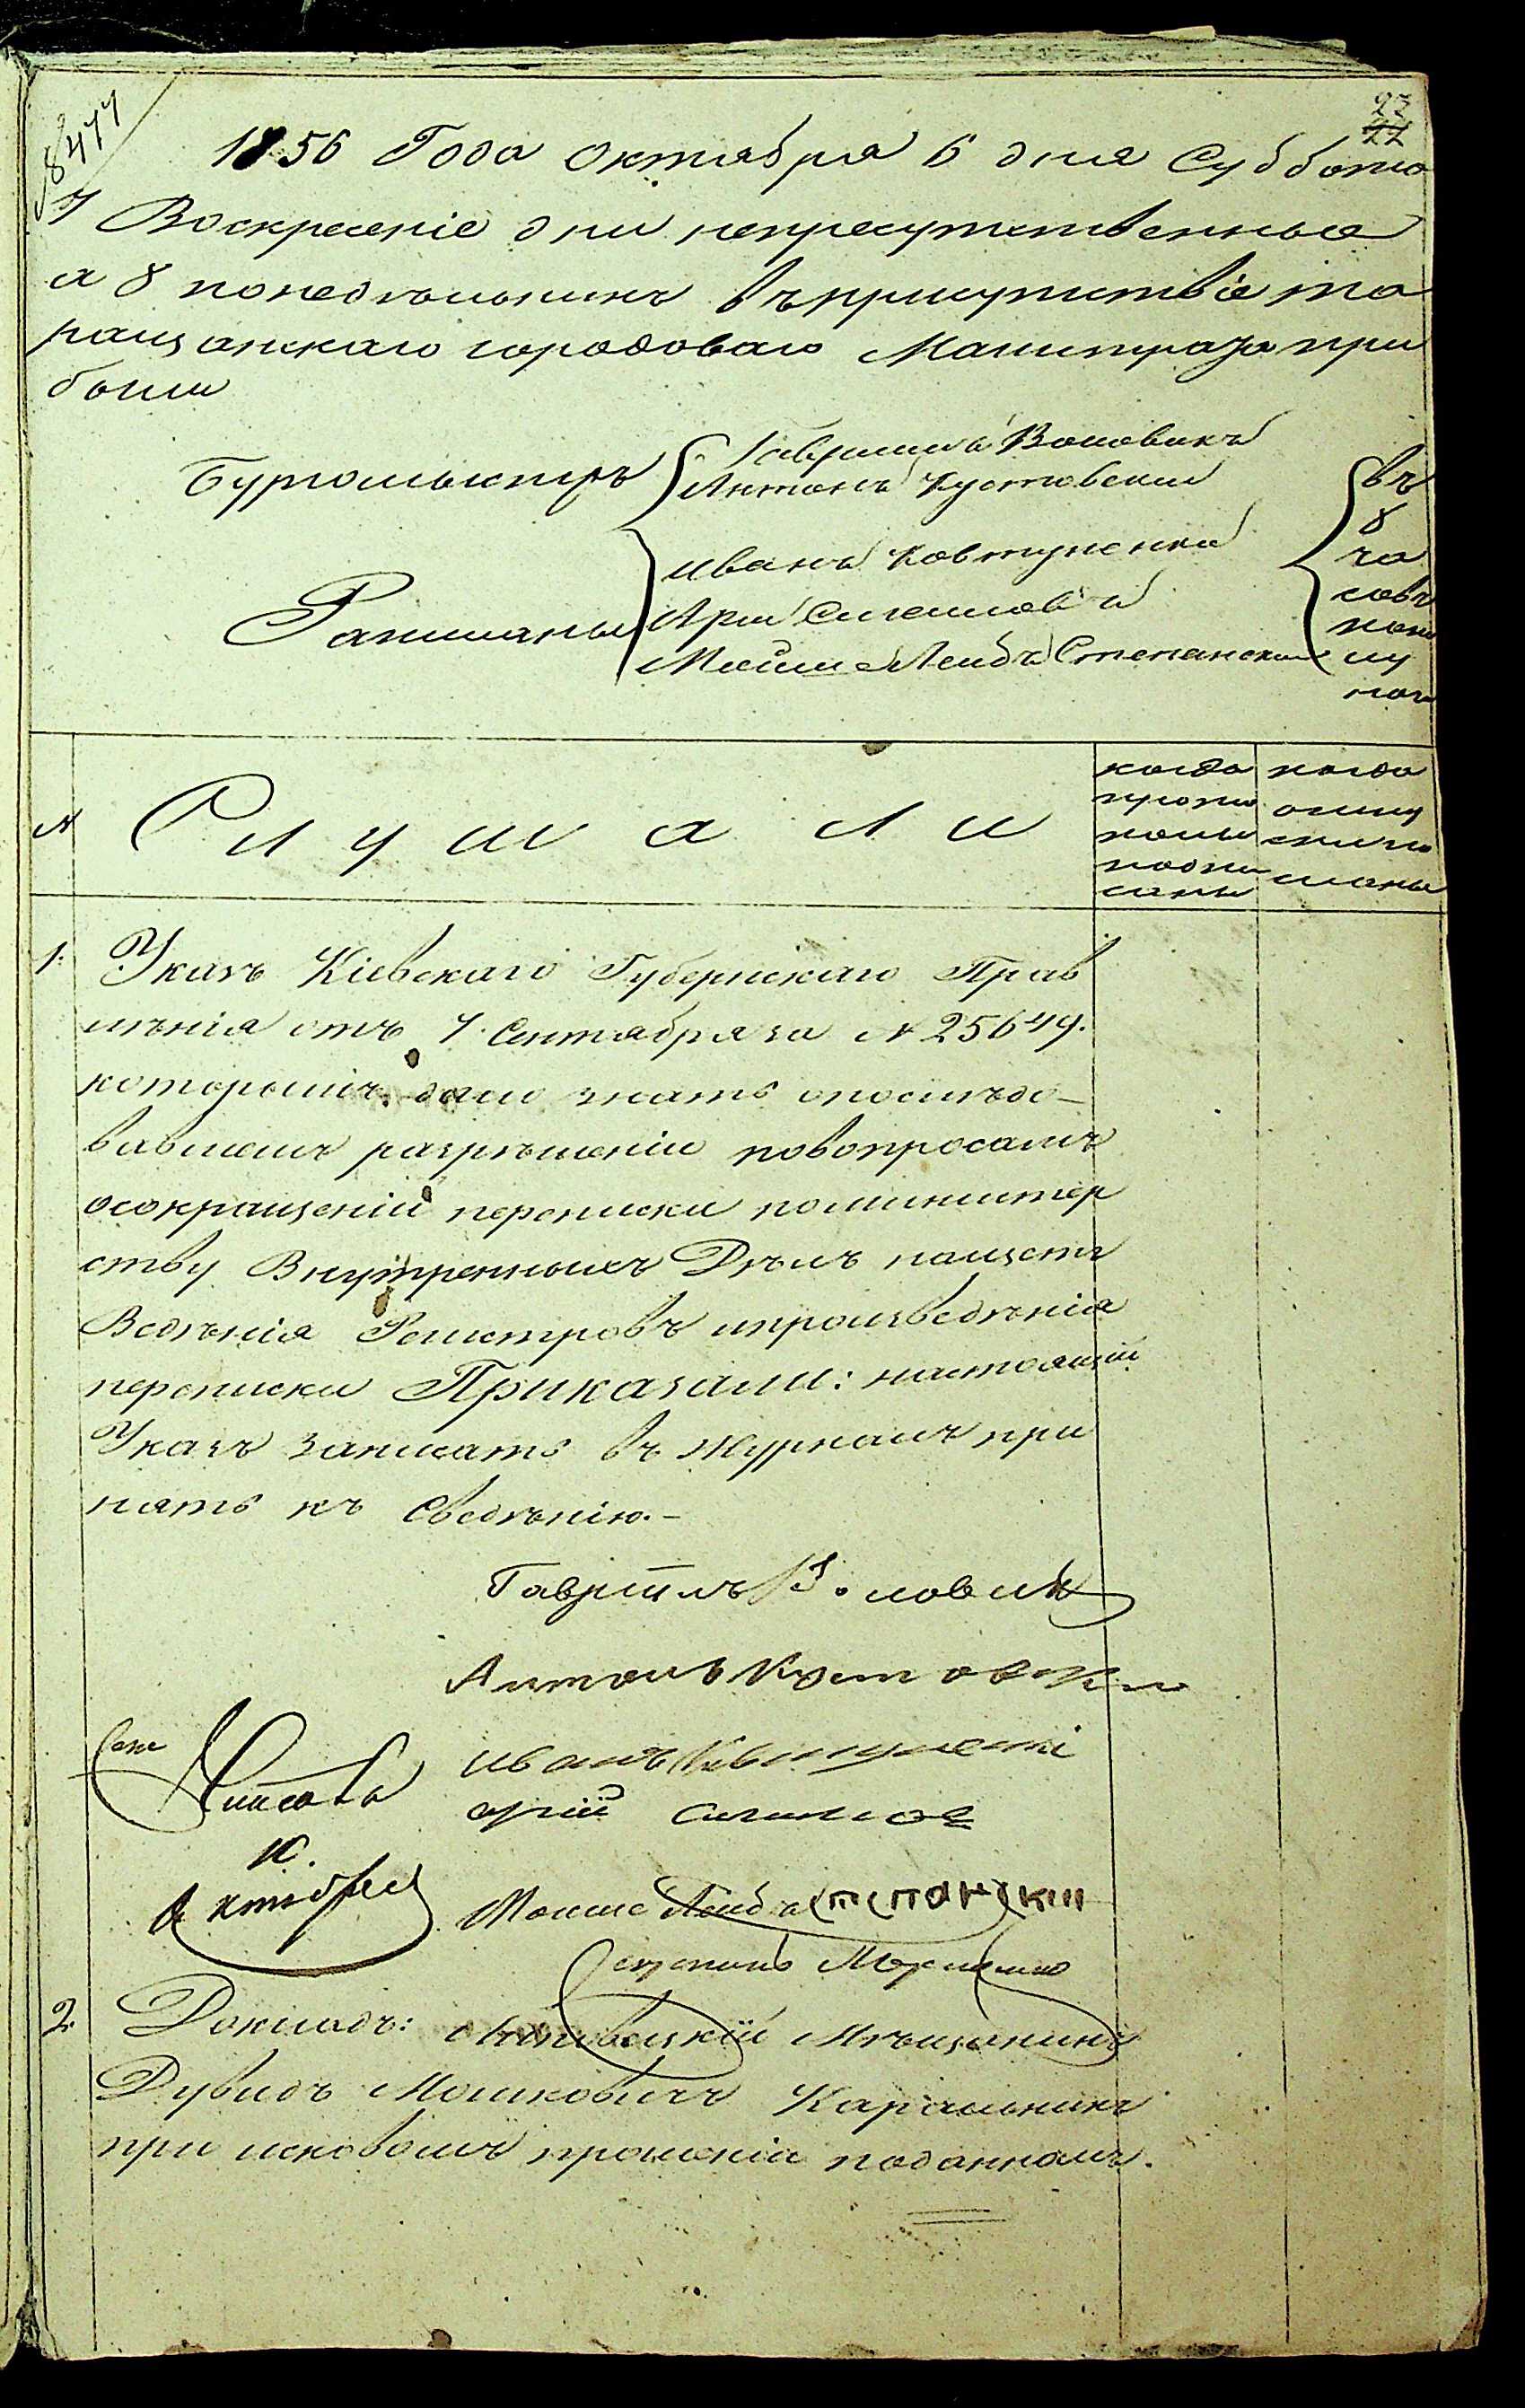 8477
23
22
1856 Года Октября 6 дня Суббота
7 Воскресеніе дни неприсутственные
а 8 понедельникъ въ присутствіе та
ращанскаго городоваго Магистрата при
были
Бургомистръ
Гавриилъ Воловикъ
Антонъ Кустовскій
Ратманы
Иванъ Ковтуненко
Арій
Мойше Лейбъ Степанскій
въ
8
ча
совъ
попо
лу
ночи
№
Слушали
когда
прото
колы
подпи
саны
когда
отпу
скы по
сланы
1.
Указъ Кіевскаго Губернскаго Прав
ленія отъ 7. Сентября за № 25649.
которымъ дано знать опослѣдо-
вавшемъ разрѣшеніи повопросамъ
осокращеніи переписки поминистер
ству Внутреннихъ Дѣлъ насчетъ
Веденія Регистровъ ипроизведенія
переписки Приказали: настоящій
Указъ записать въ журналъ при
нять къ сведѣнію.-
Гавріилъ Воловик
Антонъ Кустовский
Иванъ
арій
10.
Октября
Моише Лейбъ Степанскій
Секретарь
2.
Докладъ: мѣщанинъ
Дувидъ Мошковичъ Каральникъ
при исковомъ прошеніи поданномъ.